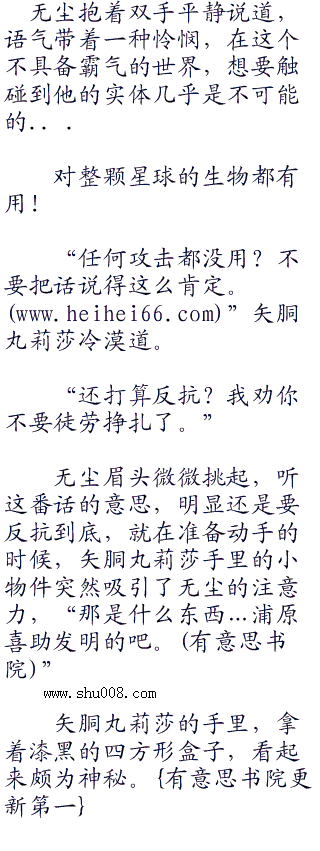 无尘抱着双手平静说道，
语气带着一种怜悯，在这个
不具备霸气的世界，想要触
碰到他的实体几乎是不可能
的．．．
对整颗星球的生物都有
用！
“任何攻击都没用？不
要把话说得这么肯定。
(www.heihei66.com)”矢胴
丸莉莎冷漠道。
“还打算反抗？我劝你
不要徒劳挣扎了。”
无尘眉头微微挑起，听
这番话的意思，明显还是要
反抗到底，就在准备动手的
时候，矢胴丸莉莎手里的小
物件突然吸引了无尘的注意
力，“那是什么东西…浦原
喜助发明的吧。(有意思书
院)”
www.shu008.com
矢胴丸莉莎的手里，拿
着漆黑的四方形盒子，看起
来颇为神秘。{有意思书院更
新第一}